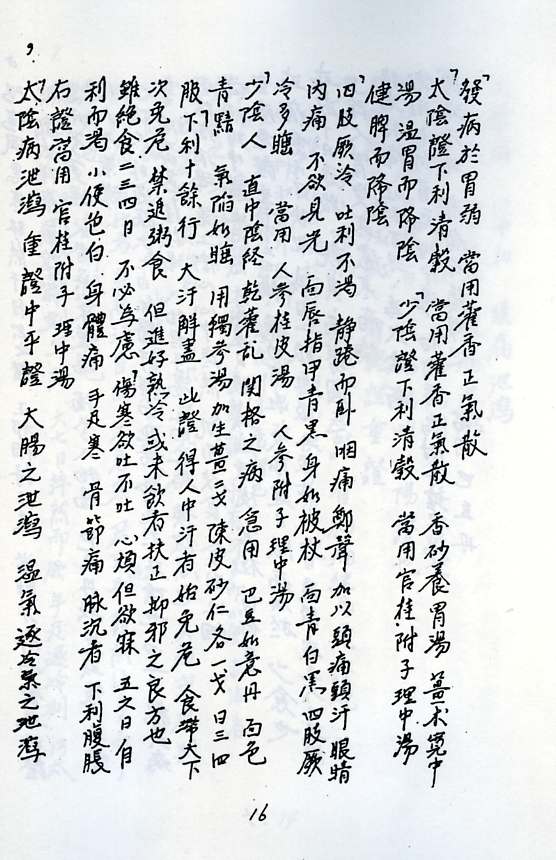 9.
「發病於胃弱 當用藿香正氣散
「太陰證下利清穀 當用藿香正氣散 香砂養胃湯 薑朮寬中
湯 溫胃而降陰 「少陰證下利清穀 當用官桂附子理中湯
健脾而降陰
「四肢厥冷 吐利不渴 靜踡而臥 咽痛鄭聲 加以頭痛頭汗 眼睛
內痛 不欲見光 面唇指甲青黑 身如被杖 面青白黑 四肢厥
冷多睡 當用 人參桂皮湯 人參附子理中湯
「少陰人 直中陰經 乾藿乱 関格之病 急用 巴豆如意丹 面色
青黯 氣陷如睡 用獨參湯加生薑二戔 陳皮砂仁各一戔 日三四
服「下利十餘行 大汗解盡 此證 得人中汗者 始免危 食滯大下
次免危 禁進粥食 但進好熟冷 或未飲者 扶正抑邪之良方也
雖絕食二三四日 不必為慮「傷寒欲吐不吐 心煩但欲寐 五六日自
利而渴 小便色白 身體痛 手足寒 骨節痛 脉沉者 下利腹脹
右證當用 官桂附子 理中湯
「太陰病泄瀉 重證中平證 大腸之泄瀉 溫氣逐冷氣之泄瀉
16